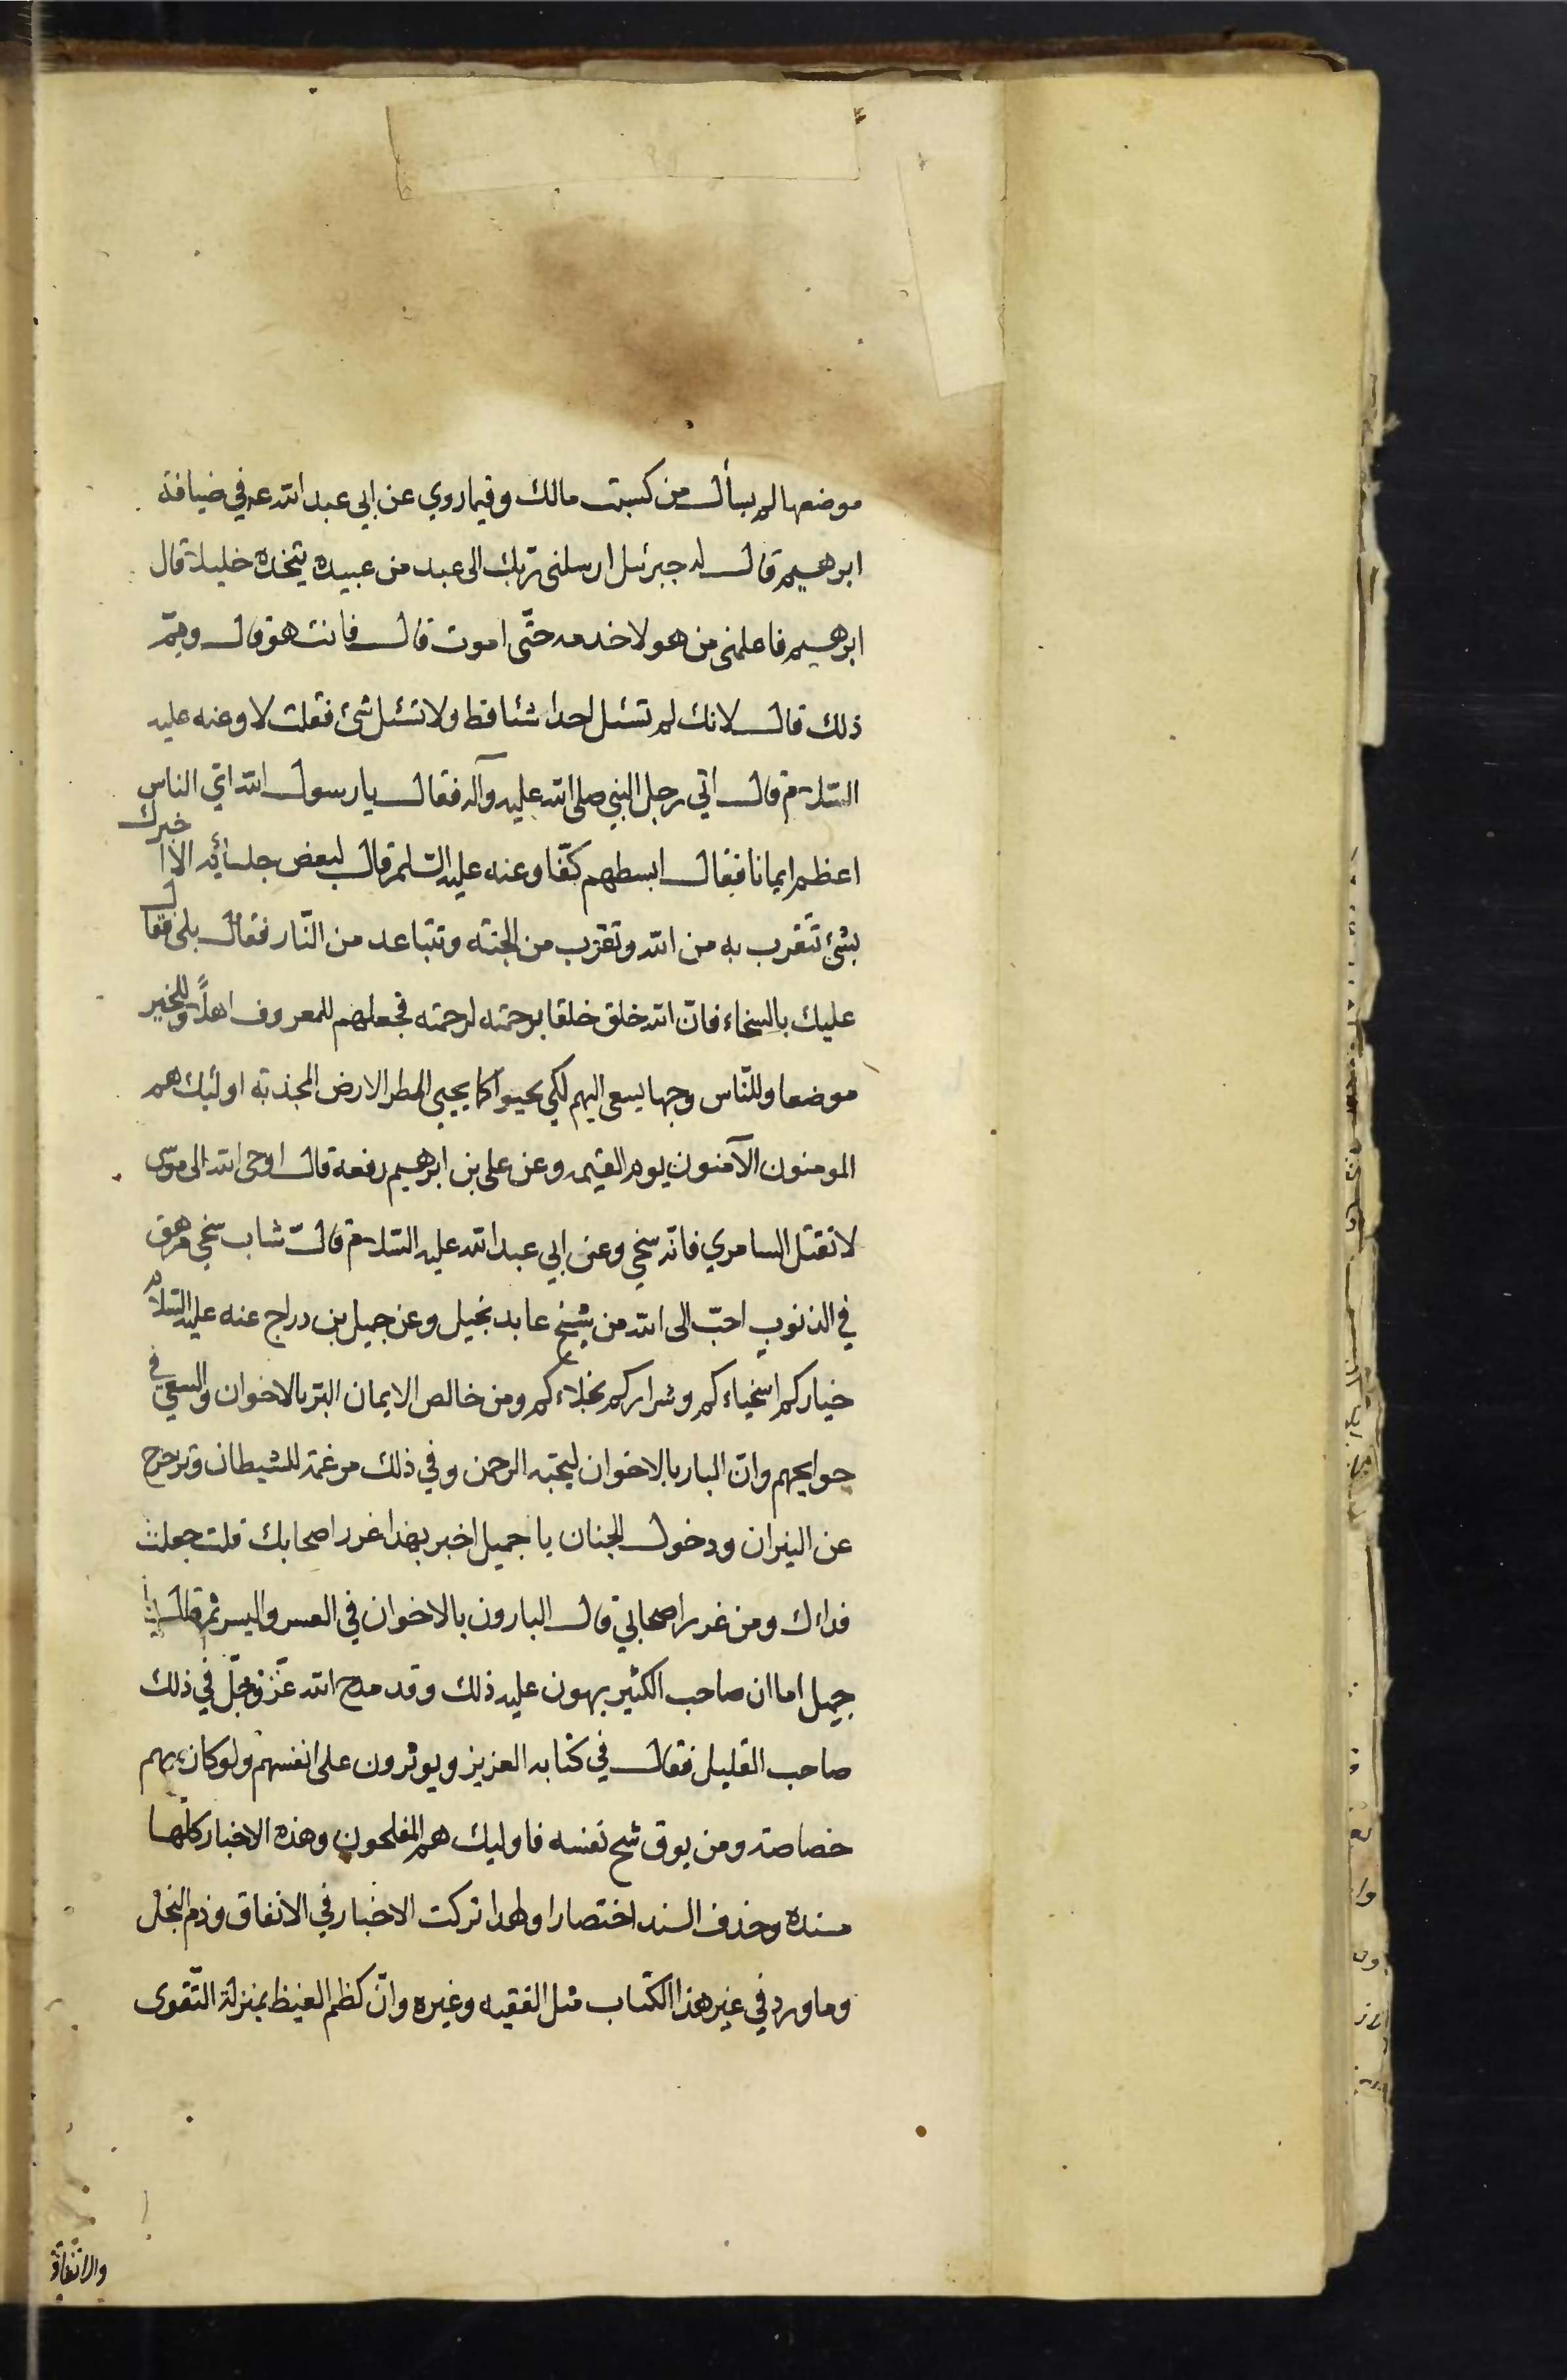 موضعها لم يسأل من كسبت مالك وفيما روي عن ابي عبد الله عم في ضيافة
ابرهيم قال له جبرئيل ارسلني ربك الى عبد من عبيده يتخذه خليلا قال
ابرهيم فاعلمني من هو لاخدمه حتّى اموت قال فانت هو قال وممّ
ذلك قال لانك لم تسئل احدا شئا قط ولا تسئل شئ فقلت لا وعنه عليه
السّلام قال اتي رجل النبي صلى الله عليه وآله فقال يا رسول الله اي الناس
اعظم ايمانا فقال ابسطهم كفّا وعنه عليه السّلم قال لبعض جلسائه الا اخبرك
بشئ تتقرب به من الله وتقرب من الجنة وتتباعد من النّار فقال بلى فقال
عليك بالسخاء فانّ الله خلق خلقا برحمته لرحمته فجعلهم للمعروف اهلاً وللخير
موضعا وللنّاس وجها يسعى اليهم لكي يحيوا كما يحيي المطر الارض المجذبة اولئك هم
المومنون الآمنون يوم القيمه وعن علي بن ابرهيم رفعه قال اوحى الله الى موسى
لا تقتل السامري فانّه سخي وعن ابي عبد الله عليه السّلام قال شاب سخي مرهق
في الذنوب احبّ الى الله من شيخ عابد بخيل وعن جميل بن دراج عنه عليه السّلام
خياركم اسخياءكم وشراركم بخلاءكم ومن خالص الايمان البرّ بالاخوان والسعي في
حوايجهم وانّ البار بالاخوان ليحبّه الرحمن وفي ذلك مرغمة للشيطان وتزحزح
عن النيران ودخول الجنان يا جميل اخبر بهذا غرر اصحابك قلت جعلت
فداك ومن غرر اصحابي قال البارون بالاخوان في العسر واليسر ثم قال يا
جميل اما ان صاحب الكثير يهون عليه ذلك وقد مدح الله عزّ وجلّ في ذلك
صاحب القليل فقال في كتابه العزيز ويوثرون على انفسهم ولو كان بهم
خصاصة ومن يوق شح نفسه فاوليك هم المفلحون وهذه الاخبار كلّها
مسنده وحذف السند اختصارا ولهذا تركت الاخبار في الانفاق وذم البخل
وما ورد في غير هذا الكتاب مثل الفقيه وغيره وانّ كظم الغيظ بمنزلة التّقوى
والانفاق